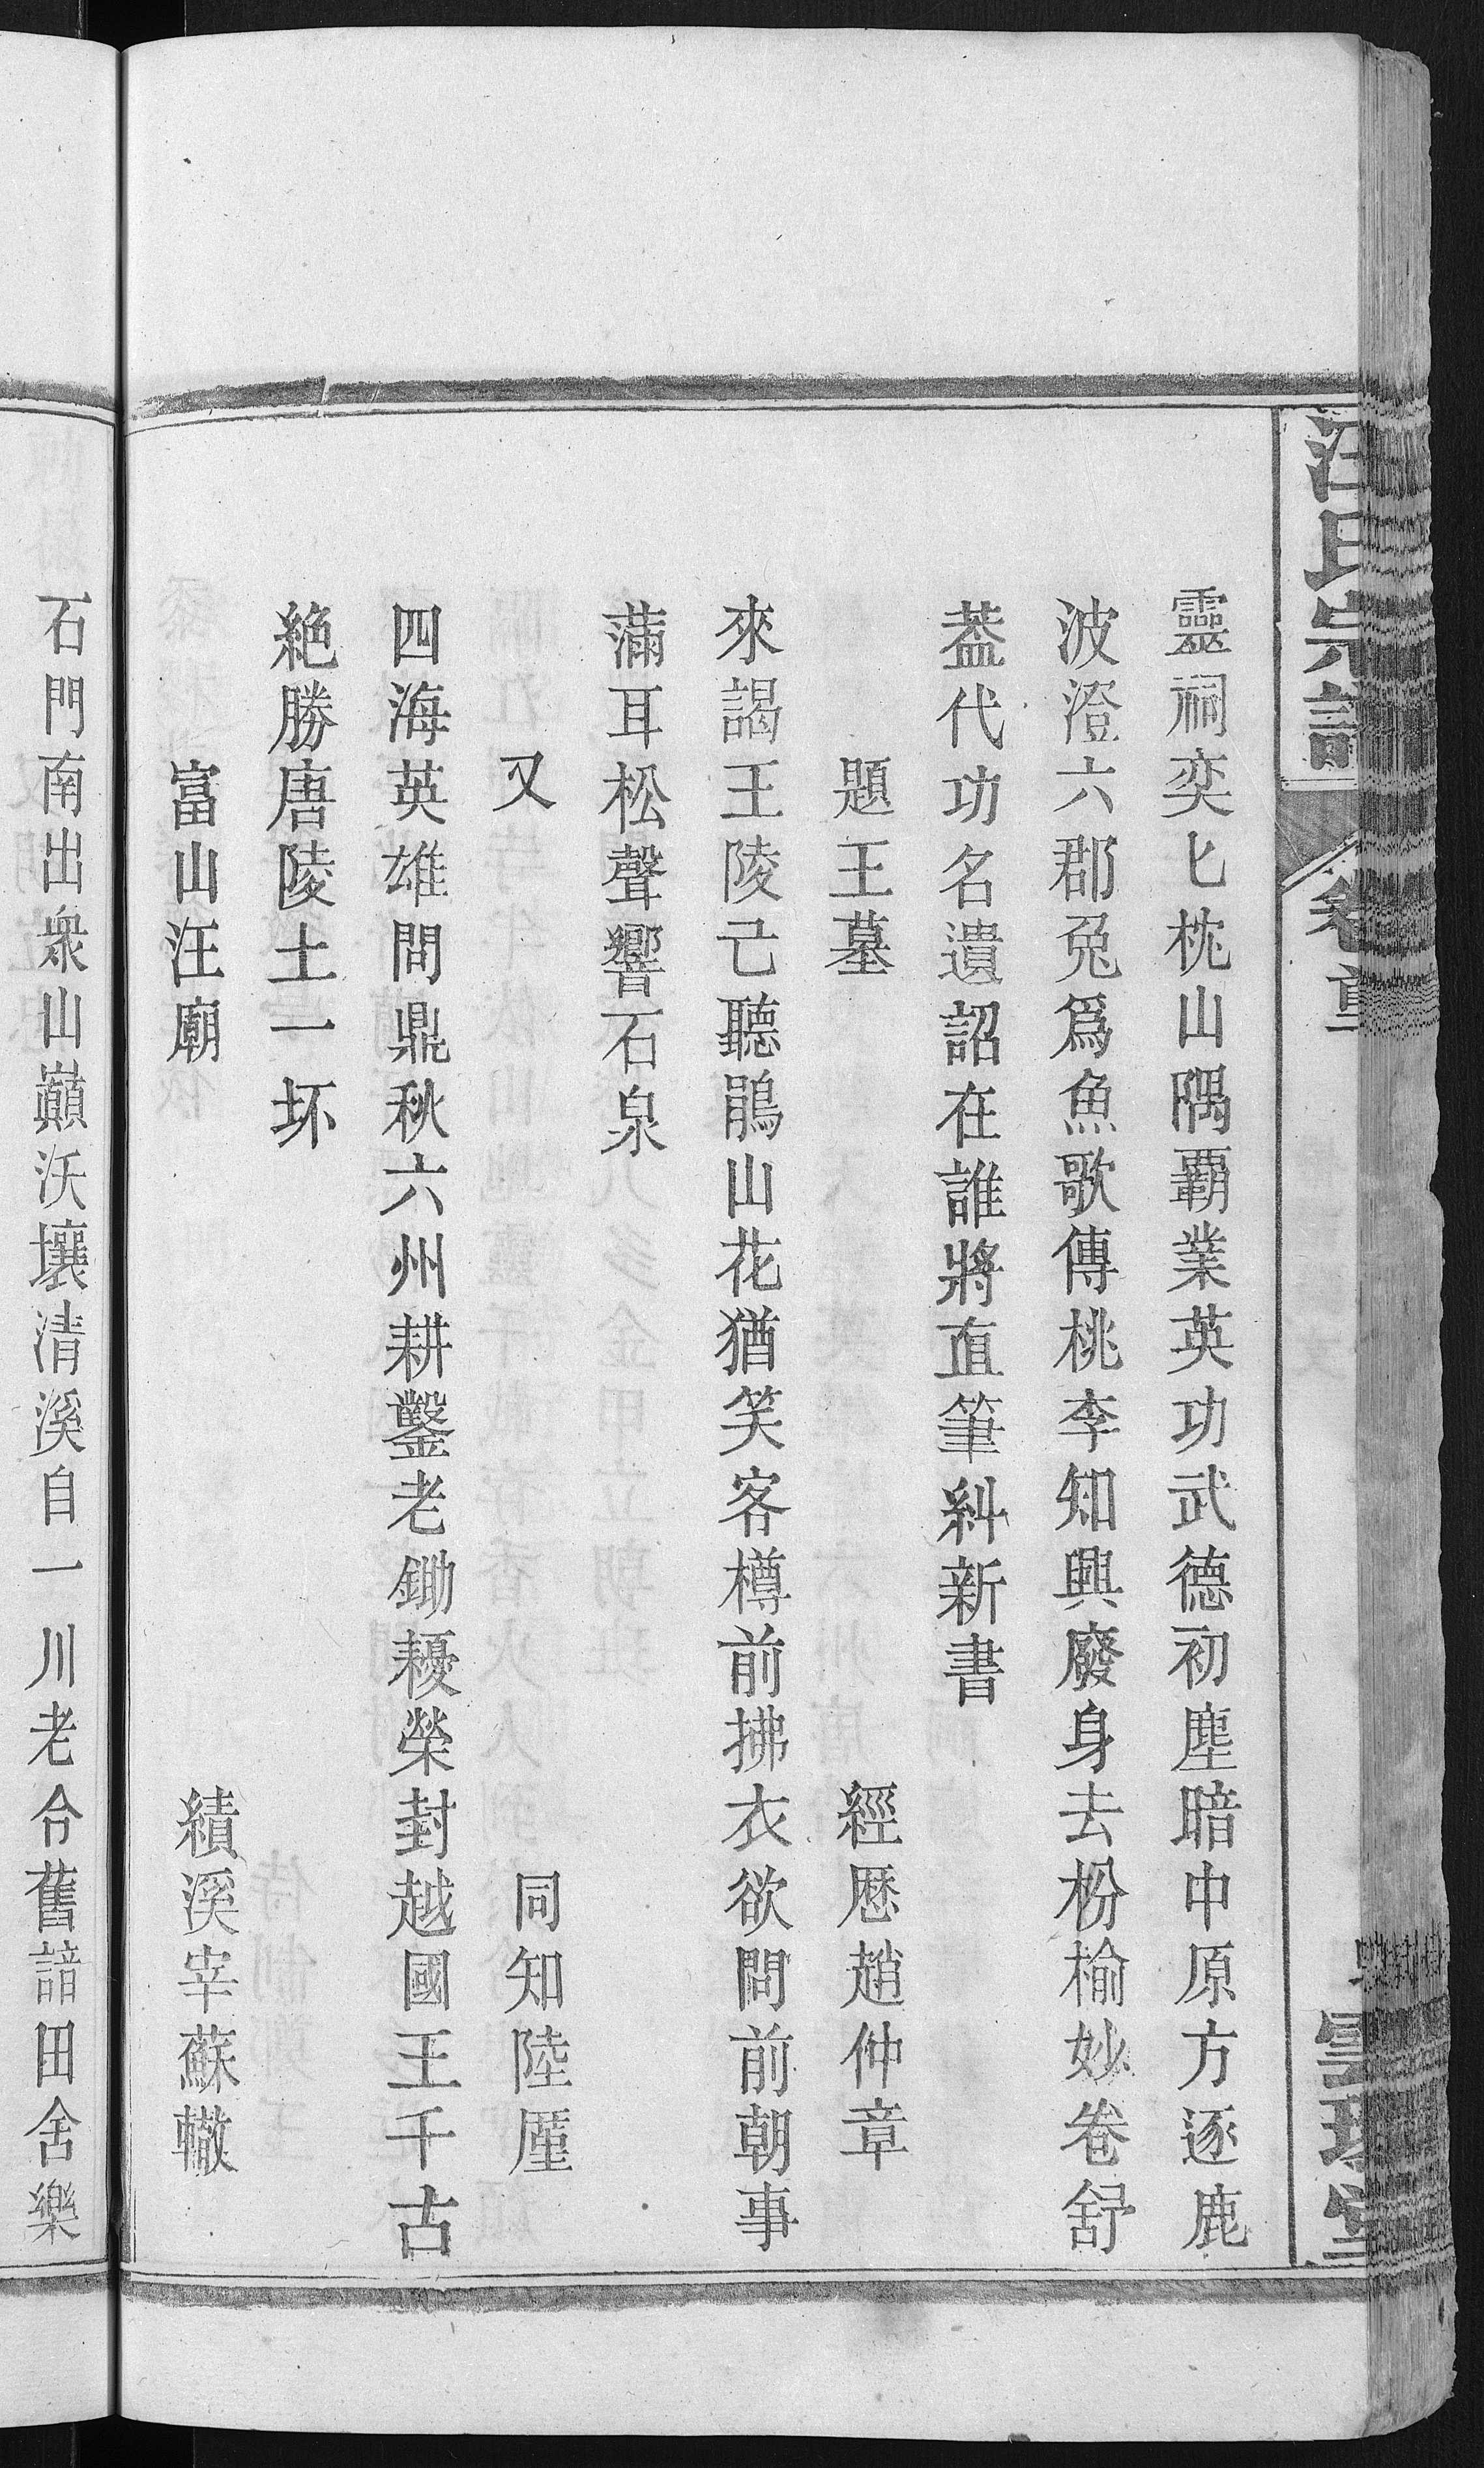 汪氏宗譜
卷首
靈祠奕匕枕山隅覇業英功武德初塵暗中原方逐鹿
波澄六郡兔爲魚歌傳桃李知興廢身去枌榆妙卷舒
葢代功名遺詔在誰將直筆糾新書
題王墓
經厯趙仲章
來謁王陵已聽鵑山花猶笑客樽前拂衣欲問前朝事
滿耳松聲響石泉
又
同知陸厓
四海英雄問鼎秋六州耕鑿老鋤耰榮封越國王千古
絶勝唐陵土一坏
富山汪廟
績溪宰蘇轍
石門南出衆山巔沃壤清溪自一川老令舊諳田舍樂